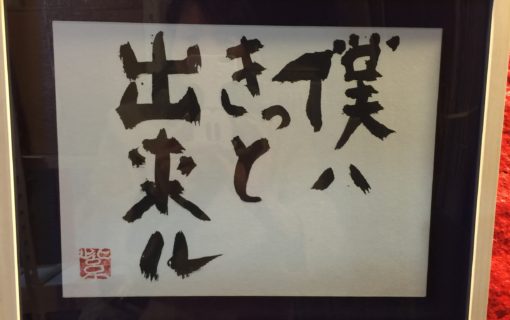 僕ハ
きっと
出来ル